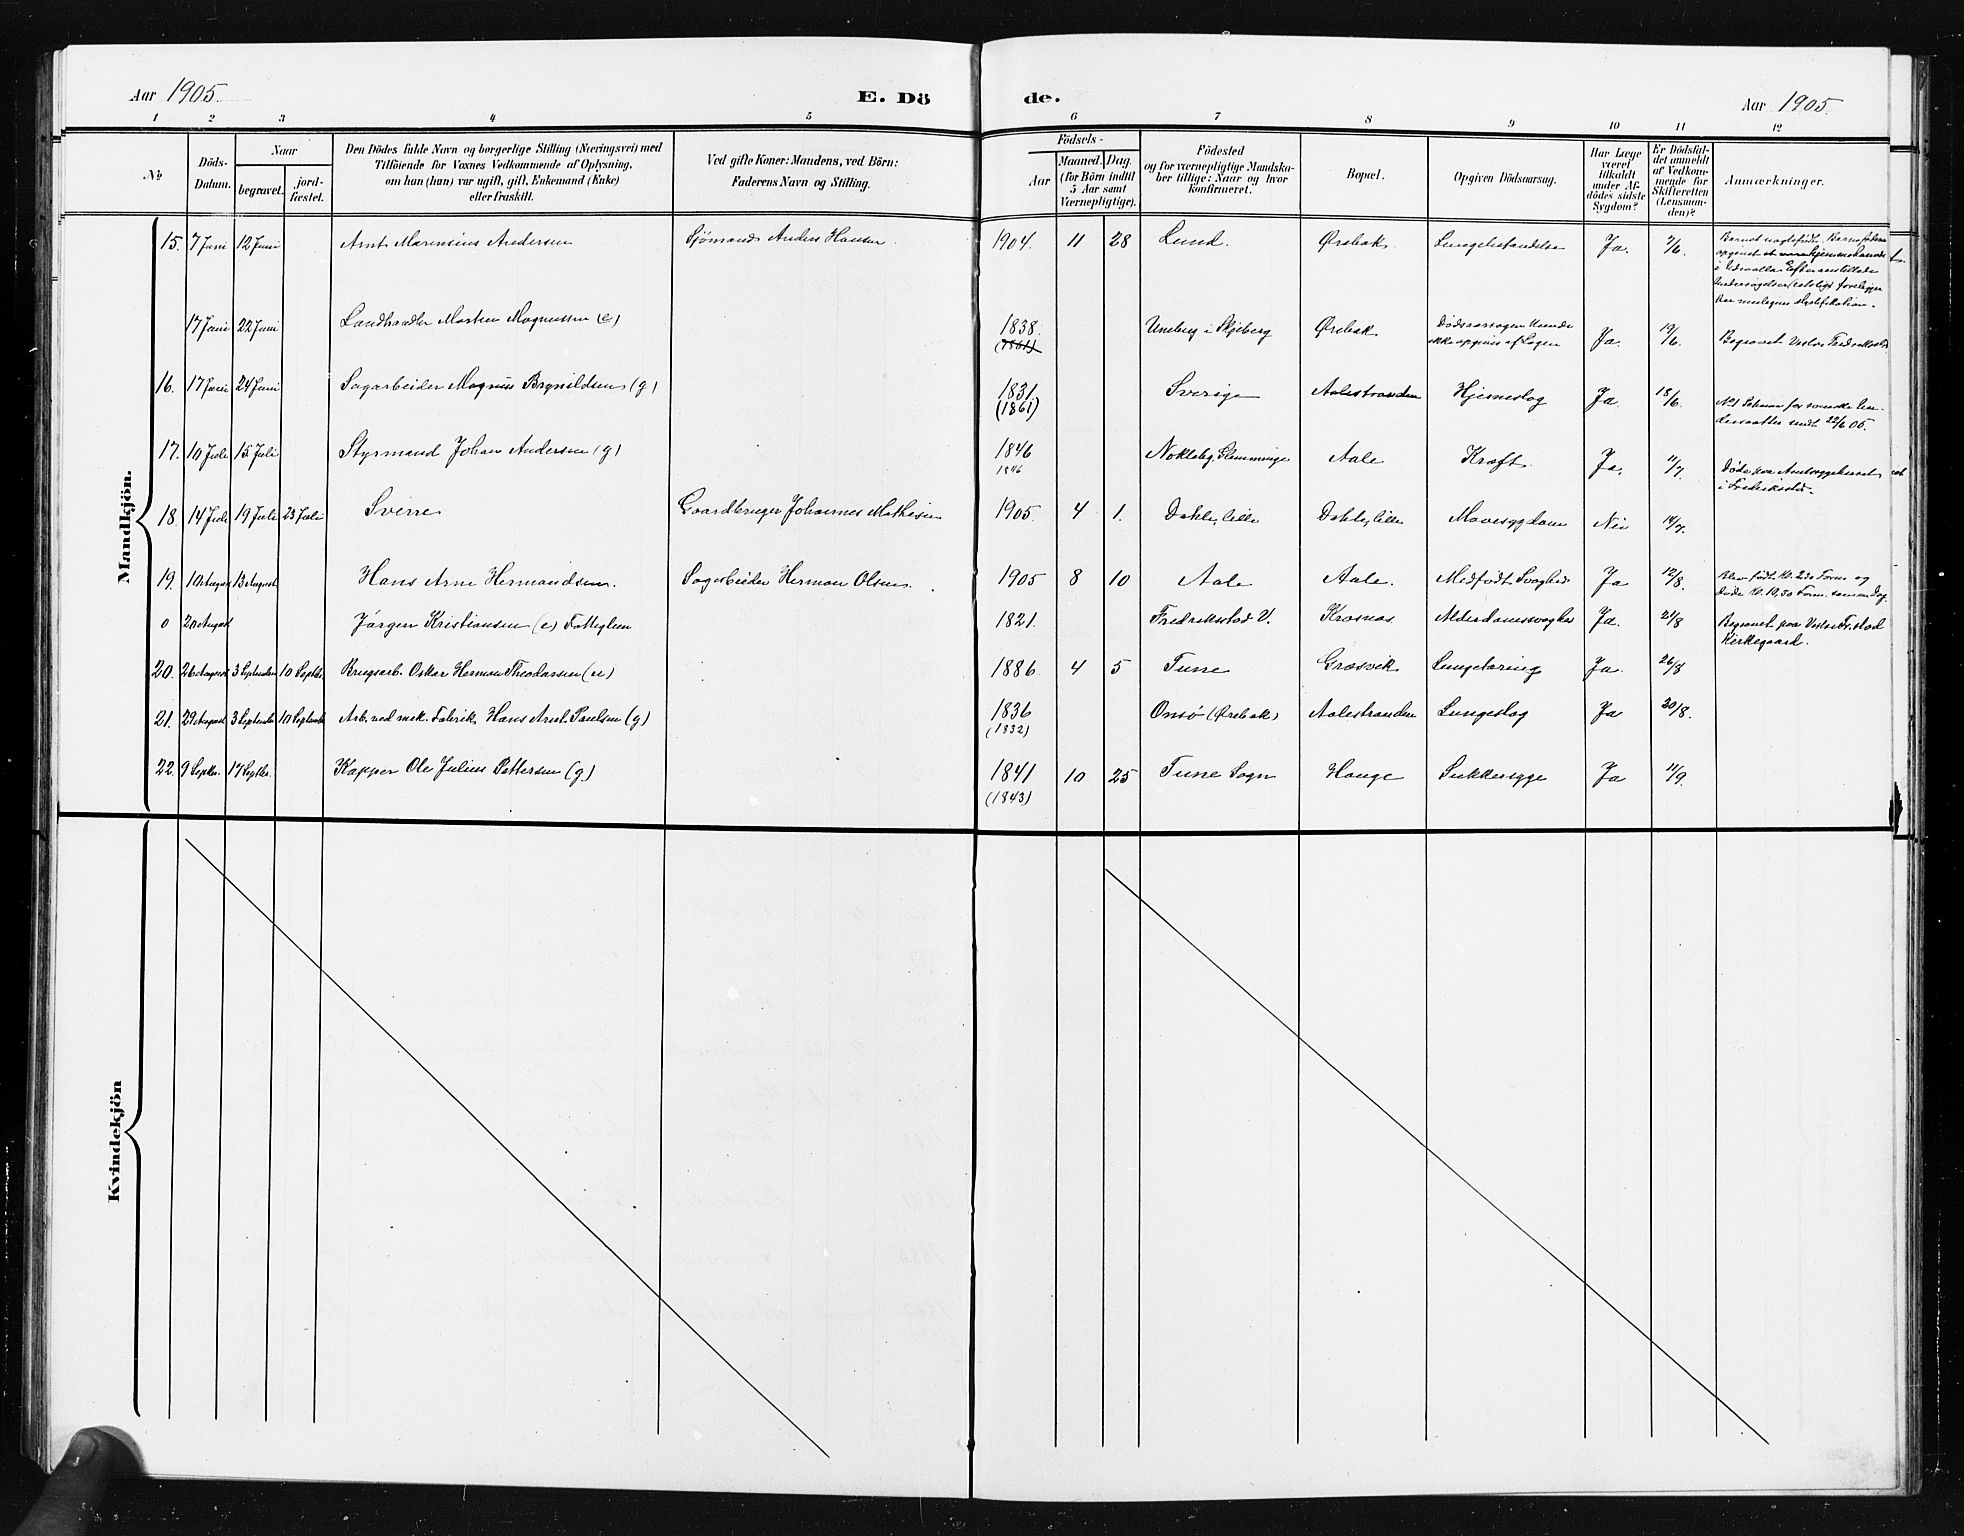 Aar 1905. E. Dö de. Aar 1905.
1 2 3 4 5 6 7 8 9 10 11 12
No Döds-Datum. Naar begravet. jord-fæstet. Den Dödes fulde Navn og borgerlige Stilling (Næringsvei) med Tilföiende for Voxnes Vedkommende af Oplysning, om han (hun) var ugift, gift, Enkemand (Enke) eller fraskilt. Ved gifte Koner: Mandens, ved Börn: Faderens Navn og Stilling. Födsels- Aar Maaned. Dag. (for Börn indtil 5 Aar samt Værnepligtige). Födested og for værnepligtige Mandskaber tillige: Naar og hvor konfirmeret. Bopæl. Opgiven Dödsaarsag. Har Læge været tilkaldt under Afdödes sidste Sygdom? Er Dödsfaldet anmeldt af Vedkommende for Skifteretten (Lensmanden)? Anmærkninger.
Mandkjön.
15. 7 Juni 12 Juni Arnt Marensius Andersen Sjömand Anders Hansen 1904. 11 28 Lund. Örebak. Lungebetændelse Ja. 7/6.
17 Juni 22 Juni Landhandler Morten Magnussen (e) 1838. (1861) Uneberg i Skjeberg Örebak Dødsaarsagen kunde ikke opgives af Lægen Ja. 19/6. Begravet Vestre Fredriksstad
16. 17 Juni 24 Juni Sagarbeider Magnus Brynildsen (g) 1831. (1861) Sverige Aalestranden Hjerneslag Ja. 18/6. sendt 22/6 05.
17. 10 Juli 15 Juli Styrmand Johan Andersen (g) 1846 1846 Nokleby, Glemminge Aale Kræft. Ja. 11/7 Døde paa Amtssygehuset i Fredriksstad.
18. 14 Juli 19 Juli 23 Juli Sverre Gaardbruger Johannes Mathisen 1905. 4 1. Dahle, lille Dahle, lille Mavesygdom Nei 14/7.
19. 10 August 13 August Hans Arne Hermandsen. Sagarbeider Herman Olsen. 1905 8 10 Aale Aale. Medfødt Svaghed Ja 12/8. Blev født Kl. 2.30 Form. og døde Kl. 10.30 Form. samme Dag.
0 20 August Jörgen Kristiansen (e) Fattiglem 1821. Fredriksstad V. Krosnes Alderdomssvaghed Ja. 21/8 Begravet paa Vestre Fr.stad Kirkegaard.
20. 26 August 3 September 10 Septbr. Brugsarb. Oskar Herman Theodorsen (u) 1886 4 5 Tune Græsvik Lungetæring Ja. 26/8
21. 29 August 3 September 10 September Arb. ved mek. Fabrik Hans Arnt Paulsen (g) 1836 (1832) Onsø (Örebak) Aalestranden Lungeslag Ja 30/8.
22. 9 Septbr. 17 Septbr. Kapper Ole Julius Pettersen (g) 1841 (1843) 10 25 Tune Sogn Hauge Sukkersyge Ja 11/9.
Kvindekjön